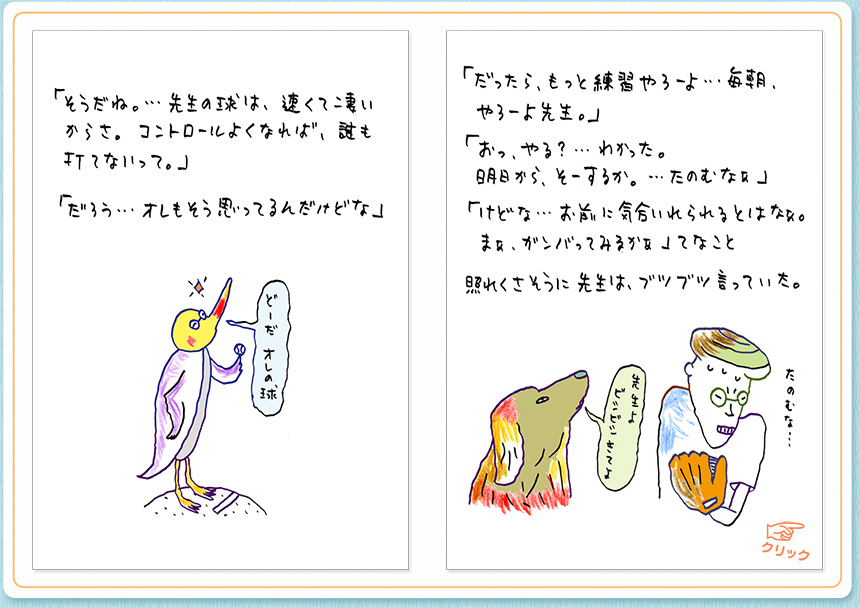 「そうだね。…先生の球は、速くてこ凄い
からさ。コントロールよくなれば、誰も
打てないって。」
「だろう…オレもそう思ってるんだけどな」
どーだ オレの球
「だったら、もっと練習やろーよ…毎朝、
やろーよ先生。」
「おっ、やる？…わかった。
明日から、そーするか。…たのむなぁ」
「けどな…お前に気合いれられるとはなぁ。
まぁ、ガンバってみるかぁ」てなこと
照れくさそうに先生は、ブツブツ言っていた。
先生よ
どんどんきてよ
たのむな…
クリック